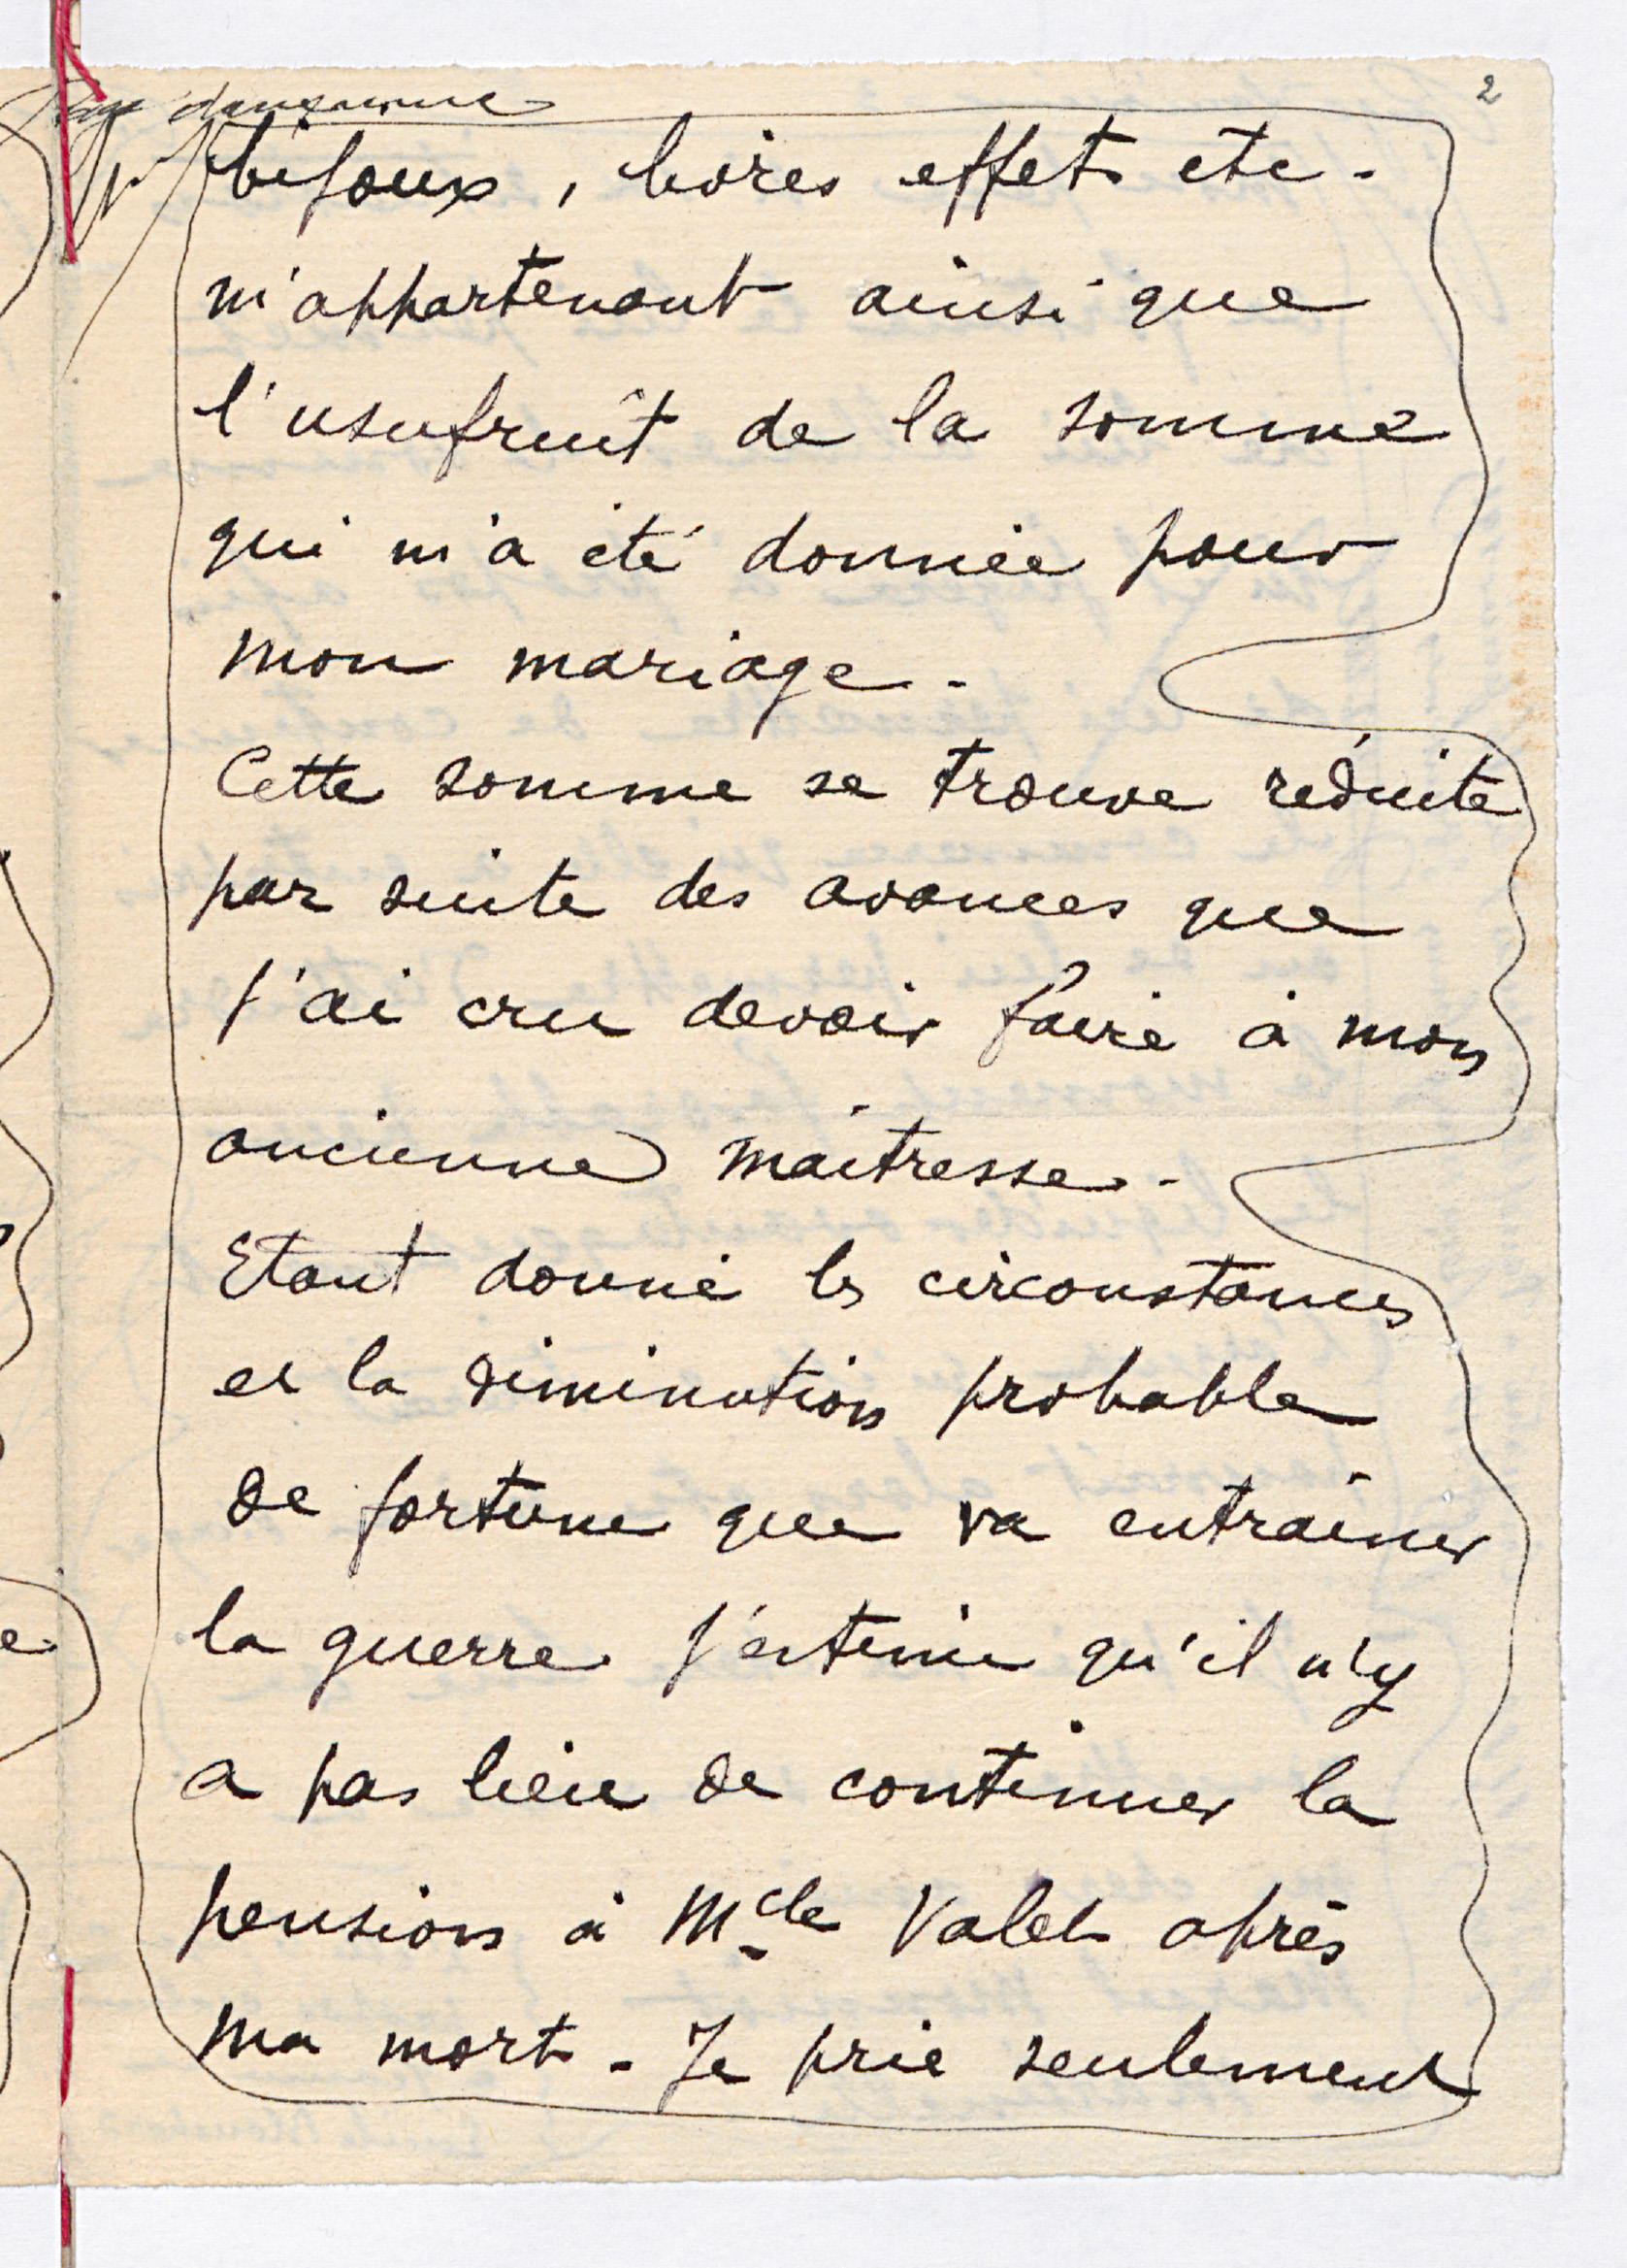 2
bijoux, livres effets etc.
m'appartenant ainsi que
l'usufruit de la somme
qui m'a été donnée pour
mon mariage.
Cette somme se trouve réduite
par suite des avances que
j'ai cru devoir faire à mon
ancienne maitresse.
Etant donné les circonstances
et la diminution probable
de fortune que va entrainer
la guerre j'estime qu'il n'y
a pas lieu de continuer la
pension à Melle Valet après
ma mort. Je prie seulement